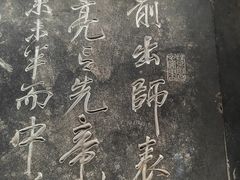 前出師表
亮言先帝
業未半而中